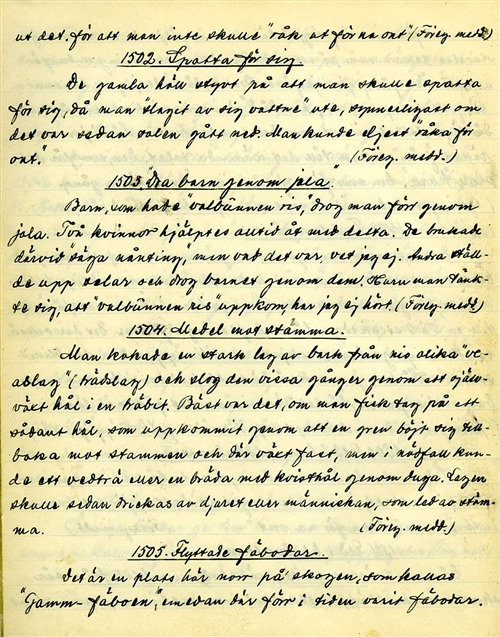 ut det, för att man inte skulle "råk ut för na ont" (Förey. medd.)
1502. Spotta för sig.
De gamla höll styvt på att man skulle spotta
för sig, då man "slagit av sig vattne" ute, synnerligast om
det var sedan solen gått ned. Man kunde eljest "råka för
ont." (Förey. medd.)
1503. Dra barn genom jola.
Barn, som hade "valbünnen ris", drog man förr genom
jola. Två kvinnor hjälptes alltid åt med detta. De brukade
därvid "säga nånting", men vad det var, vet jag ej. Andra ställ-
de upp selar och drog barnet genom dem. Huru man tänk-
te sig, att "valbünnen ris" uppkom, har jag ej hört. (Förey. medd.)
1504. Medel mot stämma.
Man kokade en stark lag av bark från nio olika "ve-
aslag" (trädslag) och slog den vissa gånger genom ett själv-
växt hål i en träbit. Bäst var det, om man fick tag på ett
sådant hål, som uppkommit genom att en gren böjt sig till-
baka mot stammen och där växt fast, men i nödfall kun-
de ett vedträ eller en bräda med kvisthål genom duga. Lagen
skulle sedan drickas av djuret eller människan, som led av stäm-
ma. (Förey. medd.)
1505. Flyttade fäbodar.
Det är en plats här norr på skogen, som kallas
"Gamm-fäboen", emedan där förr i tiden varit fäbodar.